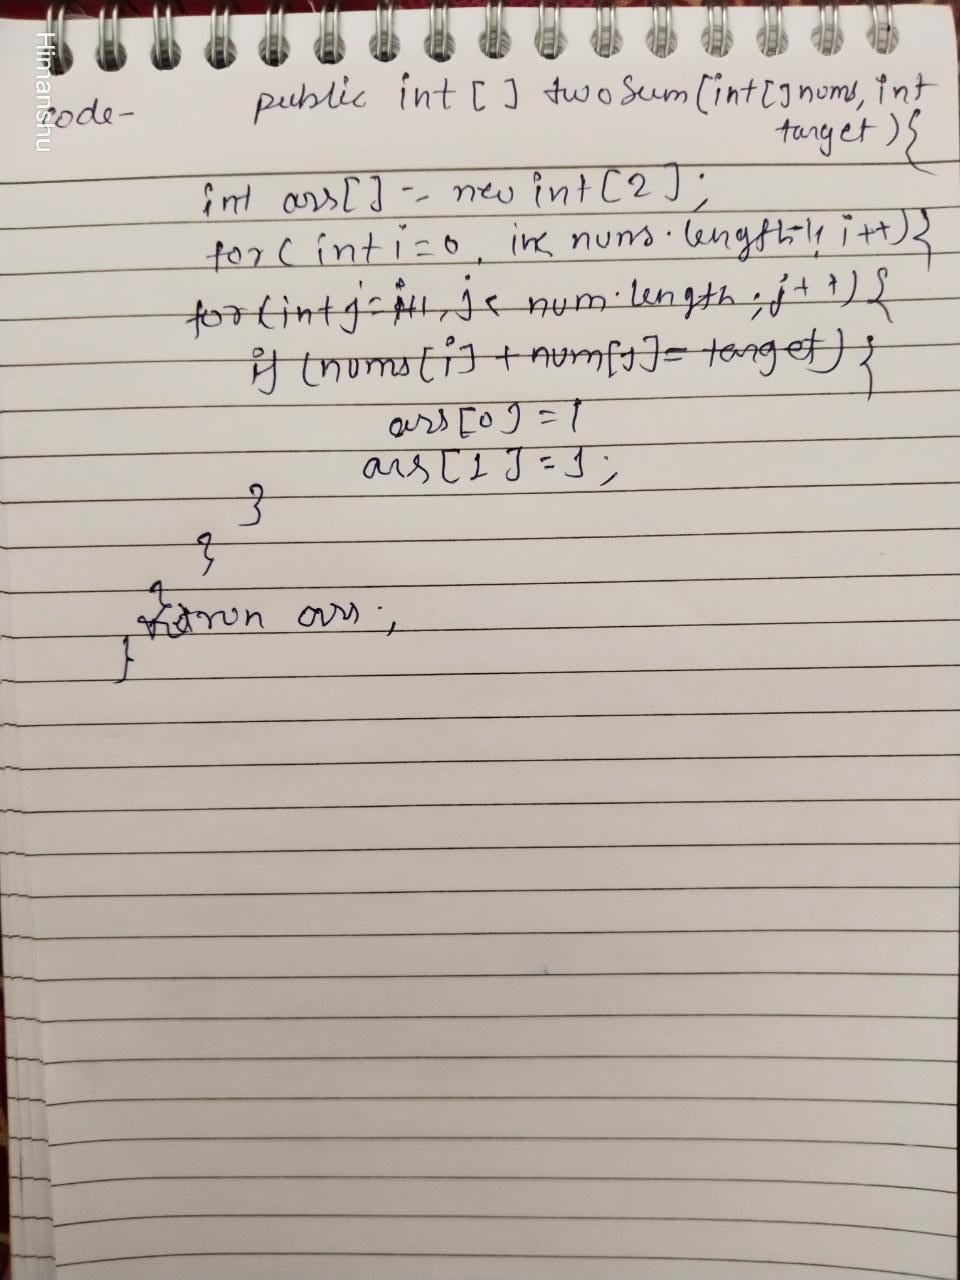 Himanshu
code-
public int [ ] twoSum(int[] nums, int
target ){
int ans[ ] = new int [2];
for( int i=0, i< nums.length-1, i++){
for(int j=i+1, j< num.length ; j++){
if (nums[i] + num[j]= target) {
ans[0] = i
ans[1] = j;
}
}
}
retrun ans ;
}